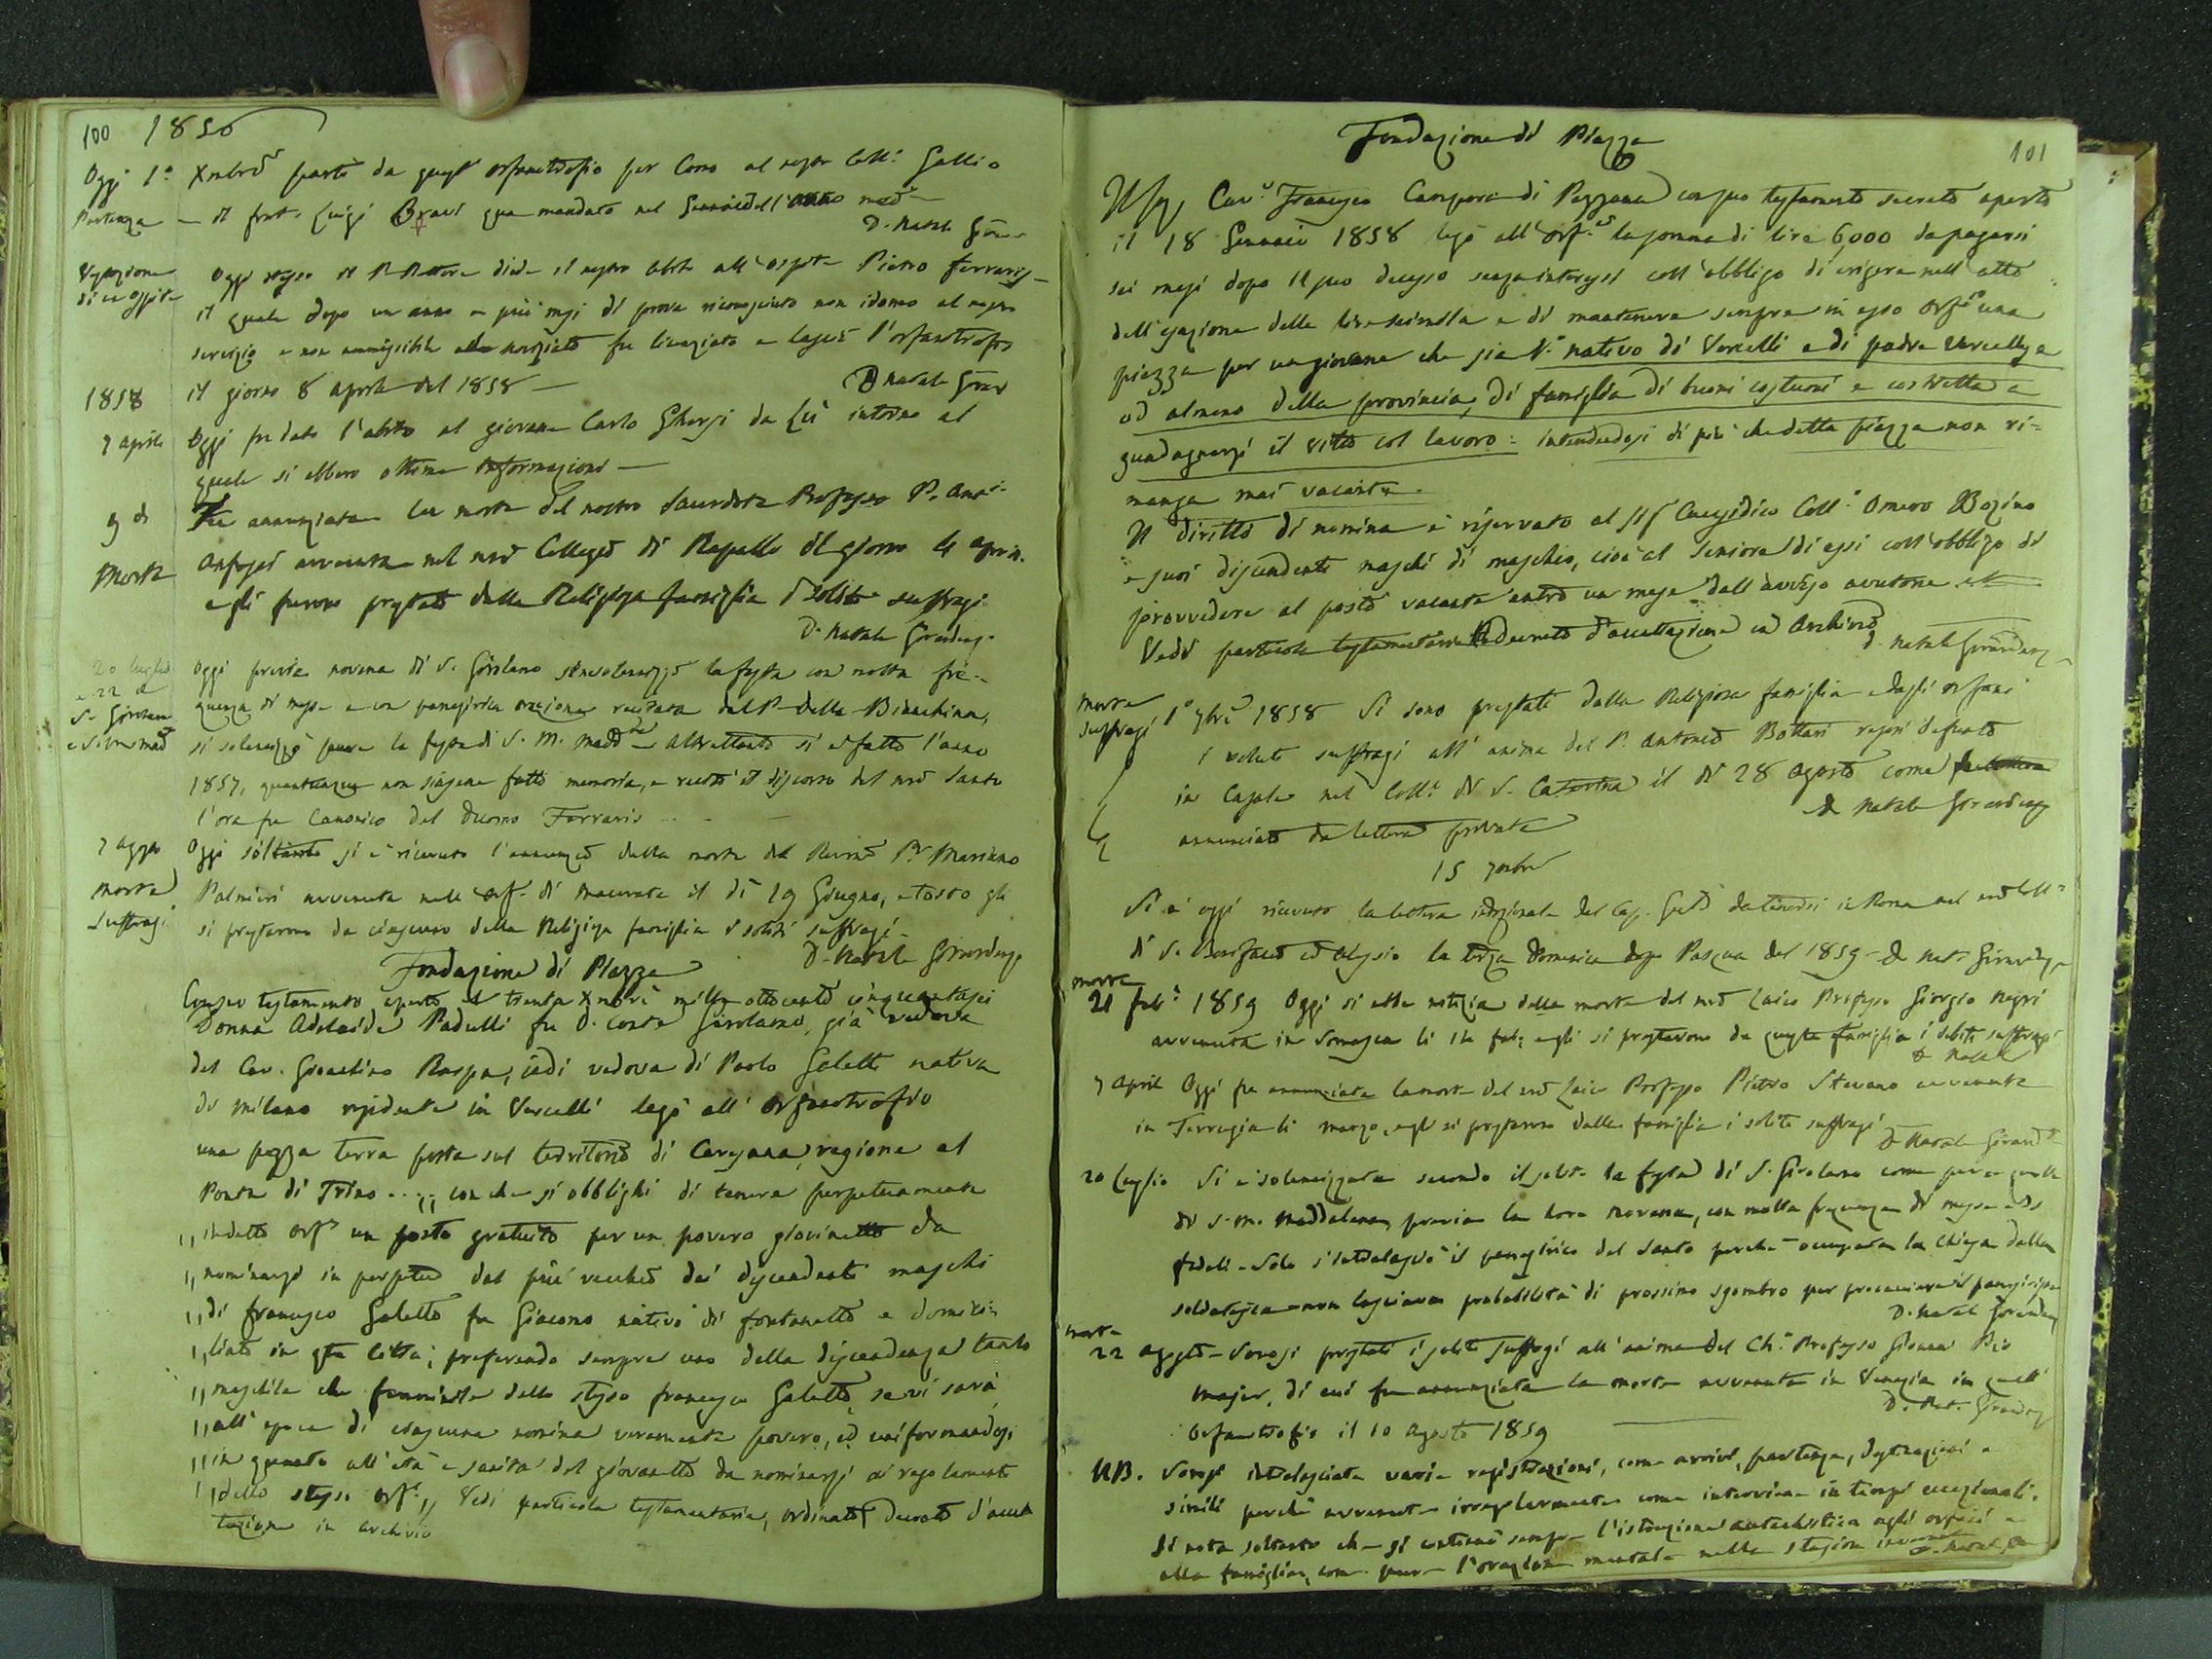 100 1856
Oggi 1º Xmbre partì da quest' orfanotrofio per Como al nostro Coll.º Gallio
Partenza — il frat. Luigi Bravi qua mandato nel Gennaio dell'anno med.º —
D. Natale Gir.
Vestizione di un ospite
Oggi stesso il P. Rettore diede il nostro abito all'ospite Pietro Ferraris —
il quale dopo un anno e più mesi di prova riconosciuto non idoneo al nostro
servizio e non ammissibile al noviziato fu licenziato e lasciò l'orfanotrofio
1858 il giorno 8 aprile del 1858 — D Natale Girar
7 aprile Oggi fu dato l'abito al giovane Carlo Ghersi da Lù intorno al
quale si ebbero ottime informazioni —
9 dº Fu annunziata la morte del nostro Sacerdote Professo P. Ant.º
Morte avvenuta nel nrõ Collegio di Rapallo il giorno 4 aprile.
e gli furono prestati dalla Religiosa famiglia i soliti suffragi
D. Natale Girardengo
20 luglio e 22 dº S. Girolamo
Oggi previa novena di S. Girolamo si solennizzò la festa con molta fre-
quenza di messe e un panegirica orazione recitata dal P. Della Bianchina,
si solennizzò pure la festa di S. M. Madd.na — Altrettanto si è fatto l'anno
1857, quantunque non siasene fatto memoria, e recitò il discorso del nrõ Santo
l'ora fu Canonico del Duomo Ferraris ...
7 Agosto Oggi soltanto si è ricevuto l'annunzio della morte del Rev.mo P. Mariano
Morte Palmieri avvenuta nell' Orf.º di Macerata il dì 19 Giugno, e tosto gli
Suffragi si prestarono da ciascuno della Religiosa famiglia i soliti suffragi —
D. Natale Girardengo
Fondazione di Piazza
Con suo testamento aperto il trenta Xmbre mille ottocento cinquantasei
Donna Adelaide Padulli fu D. Conte Girolamo, già vedova
del Cav. Gioachino Raspa, indi vedova di Paolo Galetti nativa
di Milano residente in Vercelli legò all' orfanotrofio
una pezza terra posta sul territorio di Caresana, regione al
Ponte di Trino ... ,, con che si obblighi di tenere perpetuamente
,, in detto Orf.º un posto gratuito per un povero giovinetto da
,, nominarsi in perpetuo dal più vecchio dei discendenti maschi
,, di Francesco Galetto fu Giacomo nativo di Fontanetto e domici-
,, liato in qta Città; preferendo sempre uno della discendenza tanto
,, maschile che femminile dello stesso Francesco Galetto, se vi sarà
,, all' epoca di ciascuna nomina veramente povero, ed uniformandosi
,, in quanto all' età e sanità del giovanetto da nominarsi ai regolamenti
,, dello stesso Orf.º ,, Vedi particola testamentaria, ordinato e Decreto d'accet
tazione in archivio
Fondazione di Piazza 101
Il Sig. Cav.e Francesco Campora di Pezzana con suo testamento secreto aperto
il 18 Gennaio 1858 legò all' Orf.º la somma di lire 6,000 da pagarsi
sei mesi dopo il suo decesso senza interessi coll' obbligo di erigere nell' atto
dell' esazione delle lire seimilla e di mantenere sempre in esso Orf.º una
piazza per un giovane che sia 1.º nativo di Vercelli e di padre Vercellese
od almeno della provincia, di famiglia di buoni costumi e costretta a
guadagnarsi il vitto col lavoro: intendendosi di più che detta piazza non ri=
manga mai vacante.
Il diritto di nomina è riservato al Sig. Causidico Coll.º Omero Bozino
e suoi discendenti maschi di maschio, cioè al Seniore di essi coll' obbligo di
provvedere al posto vacante entro un mese dall' avviso avutone
Vedi particola testamentaria e Decreto d'accettazione in Archivio
D. Natale Girardengo
Morte
Suffragi 1º 7bre 1858 Si sono prestati dalla Religiosa famiglia e dagli orfani
i soluti suffragi all' anima del P. Antonio Bottari resosi defunto
in Casale nel Coll.º di S. Caterina il dì 28 agosto come
annunciato da lettera privata
D Natale Girardengo
15 7mbre
Si è oggi ricevuto la lettera del Cap. Gen.e da tenersi in Roma nel nrõ Coll.º
di S. Bonifacio ed Alessio la terza Domenica dopo Pasqua del 1859 — D Nat. Girardengo
morte
21 feb.º 1859 Oggi si ebbe notizia della morte del nrõ Laico Professo Giorgio Negri
avvenuta in Somasca li feb: e gli si prestarono da questa famiglia i soliti suffragi
D Natale
7 April Oggi fu annunciata la morte del nrõ Laico Professo Pietro Stevano avvenuta
in li marzo, e gli si prestarono dalla famiglia i soliti suffragi
D Natale Girard.
20 Luglio Si è solennizzata secondo il solito la festa di S. Girolamo come pure quella
di S. M. Maddalena, previa la loro Novena, con molta frequenza di messe e di
fedeli — Solo s'intralasciò il panegirico del Santo perchè occupata la Chiesa dalla
soldatesca non lasciava probabilità di prossimo sgombro per procacciare il panegirista
D. Natale Girardengo
morte
22 Agosto — Sonosi prestati i soliti suffragi all' anima del Ch.º Professo Pio
di cui fu annunziata la morte avvenuta in Venezia in quell'
Orfanotrofio il 10 Agosto 1859
D. Nat. Girardeng
NB. Sonosi intralasciate varie registrazioni, come arrivi, partenze, destinazioni e
simili perchè avvenute irregolarmente come interviene in tempi eccezionali.
Si nota soltanto che si continuò sempre l'istruzione catechistica agli orfani e
alla famiglia, come pure l'orazione mentale nella stagione